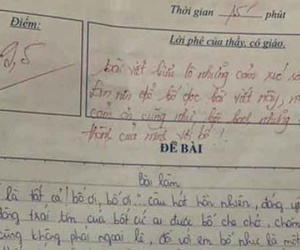 Thời gian 15 phút
Điểm:
Lời phê của thầy, cô giáo.
2,5
bài viết biểu lộ những cảm xúc
làm nên để bố đọc bài viết này,
cảm ơn cũng như
thành của mình về bố!
ĐỀ BÀI
Bài làm
là tất cả! bố ơi, bố ơi." câu hát hồn nhiên, đáng
trái tim của bất cứ ai được bố che chở,
cũng không phải ngoại lệ, đối với em bố như là